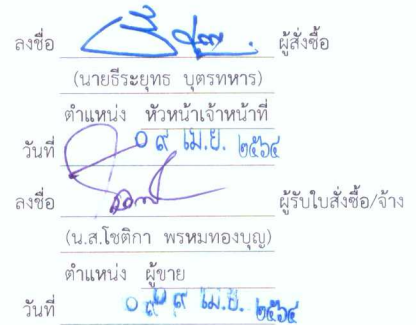 ลงชื่อ ผู้สั่งซื้อ
(นายธีระยุทธ บุตรทหาร)
ตำแหน่ง หัวหน้าเจ้าหน้าที่
วันที่ ๐ ๙ เม.ย. ๒๕๖๔
ลงชื่อ ผู้รับใบสั่งซื้อ/จ้าง
(น.ส.โชติกา พรหมทองบุญ)
ตำแหน่ง ผู้ขาย
วันที่ ๐ ๙ เม.ย. ๒๕๖๔